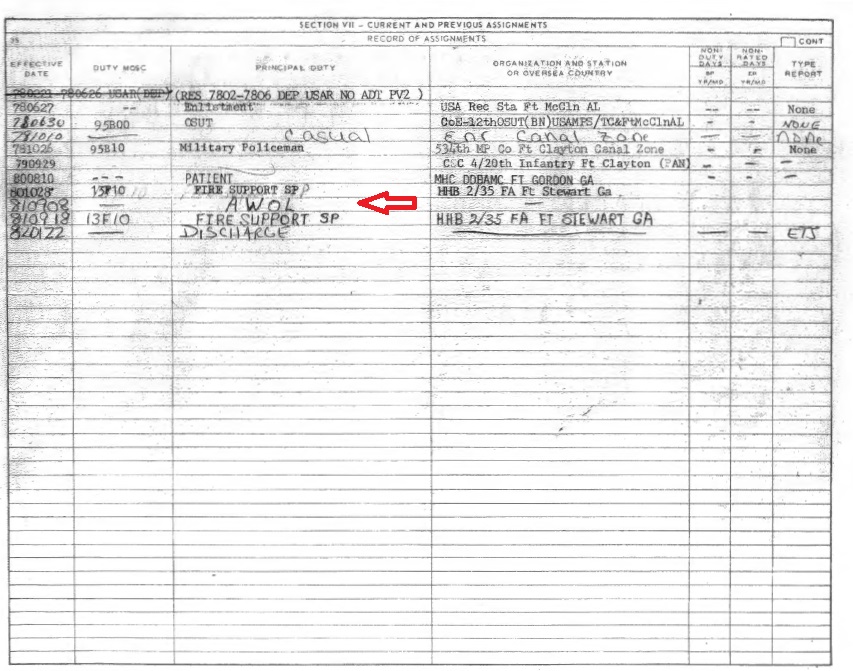 SECTION VII - CURRENT AND PREVIOUS ASSIGNMENTS
35 RECORD OF ASSIGNMENTS CONT
EFFECTIVE DATE DUTY MOSC PRINCIPAL DUTY ORGANIZATION AND STATION OR OVERSEA COUNTRY NON-DUTY DAYS NON-RATED DAYS TYPE REPORT
780221-780626 USAR(DEP) (RES 7802-7806 DEP USAR NO ADT PV2 )
780627 -- Enlistment USA Rec Sta Ft McCln AL -- -- None
780630 95B00 OSUT CoE-12thOSUT(BN)USAMPS/TC&FtMcClnAL - - NONE
781010 Casual Enr Canal Zone — — None
781026 95B10 Military Policeman 534th MP Co Ft Clayton Canal Zone - - None
790929 CSC 4/20th Infantry Ft Clayton (PAN) - - -
800810 --- PATIENT MHC DDEAMC FT GORDON GA - - -
801028 13F10 FIRE SUPPORT SP HHB 2/35 FA Ft Stewart Ga
810908 — AWOL —
810918 13F10 FIRE SUPPORT SP HHB 2/35 FA FT STEWART GA
820122 — DISCHARGE — — — ETS